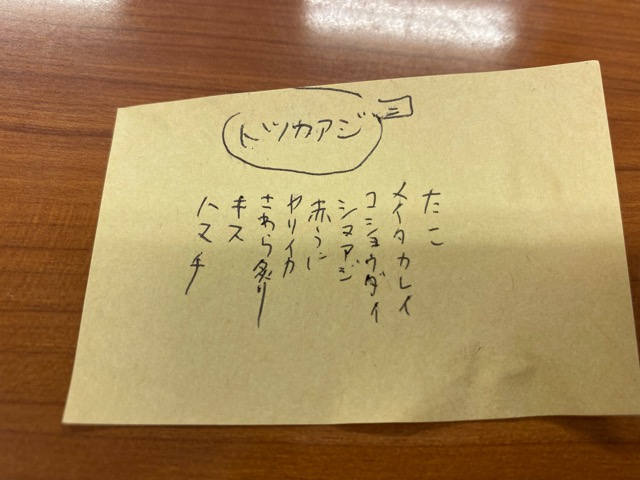 ドツカアジ
三
たこ
メイタカレイ
コショウダイ
シマアジ
赤うに
ヤリイカ
さわら炙り
キス
ハマチ